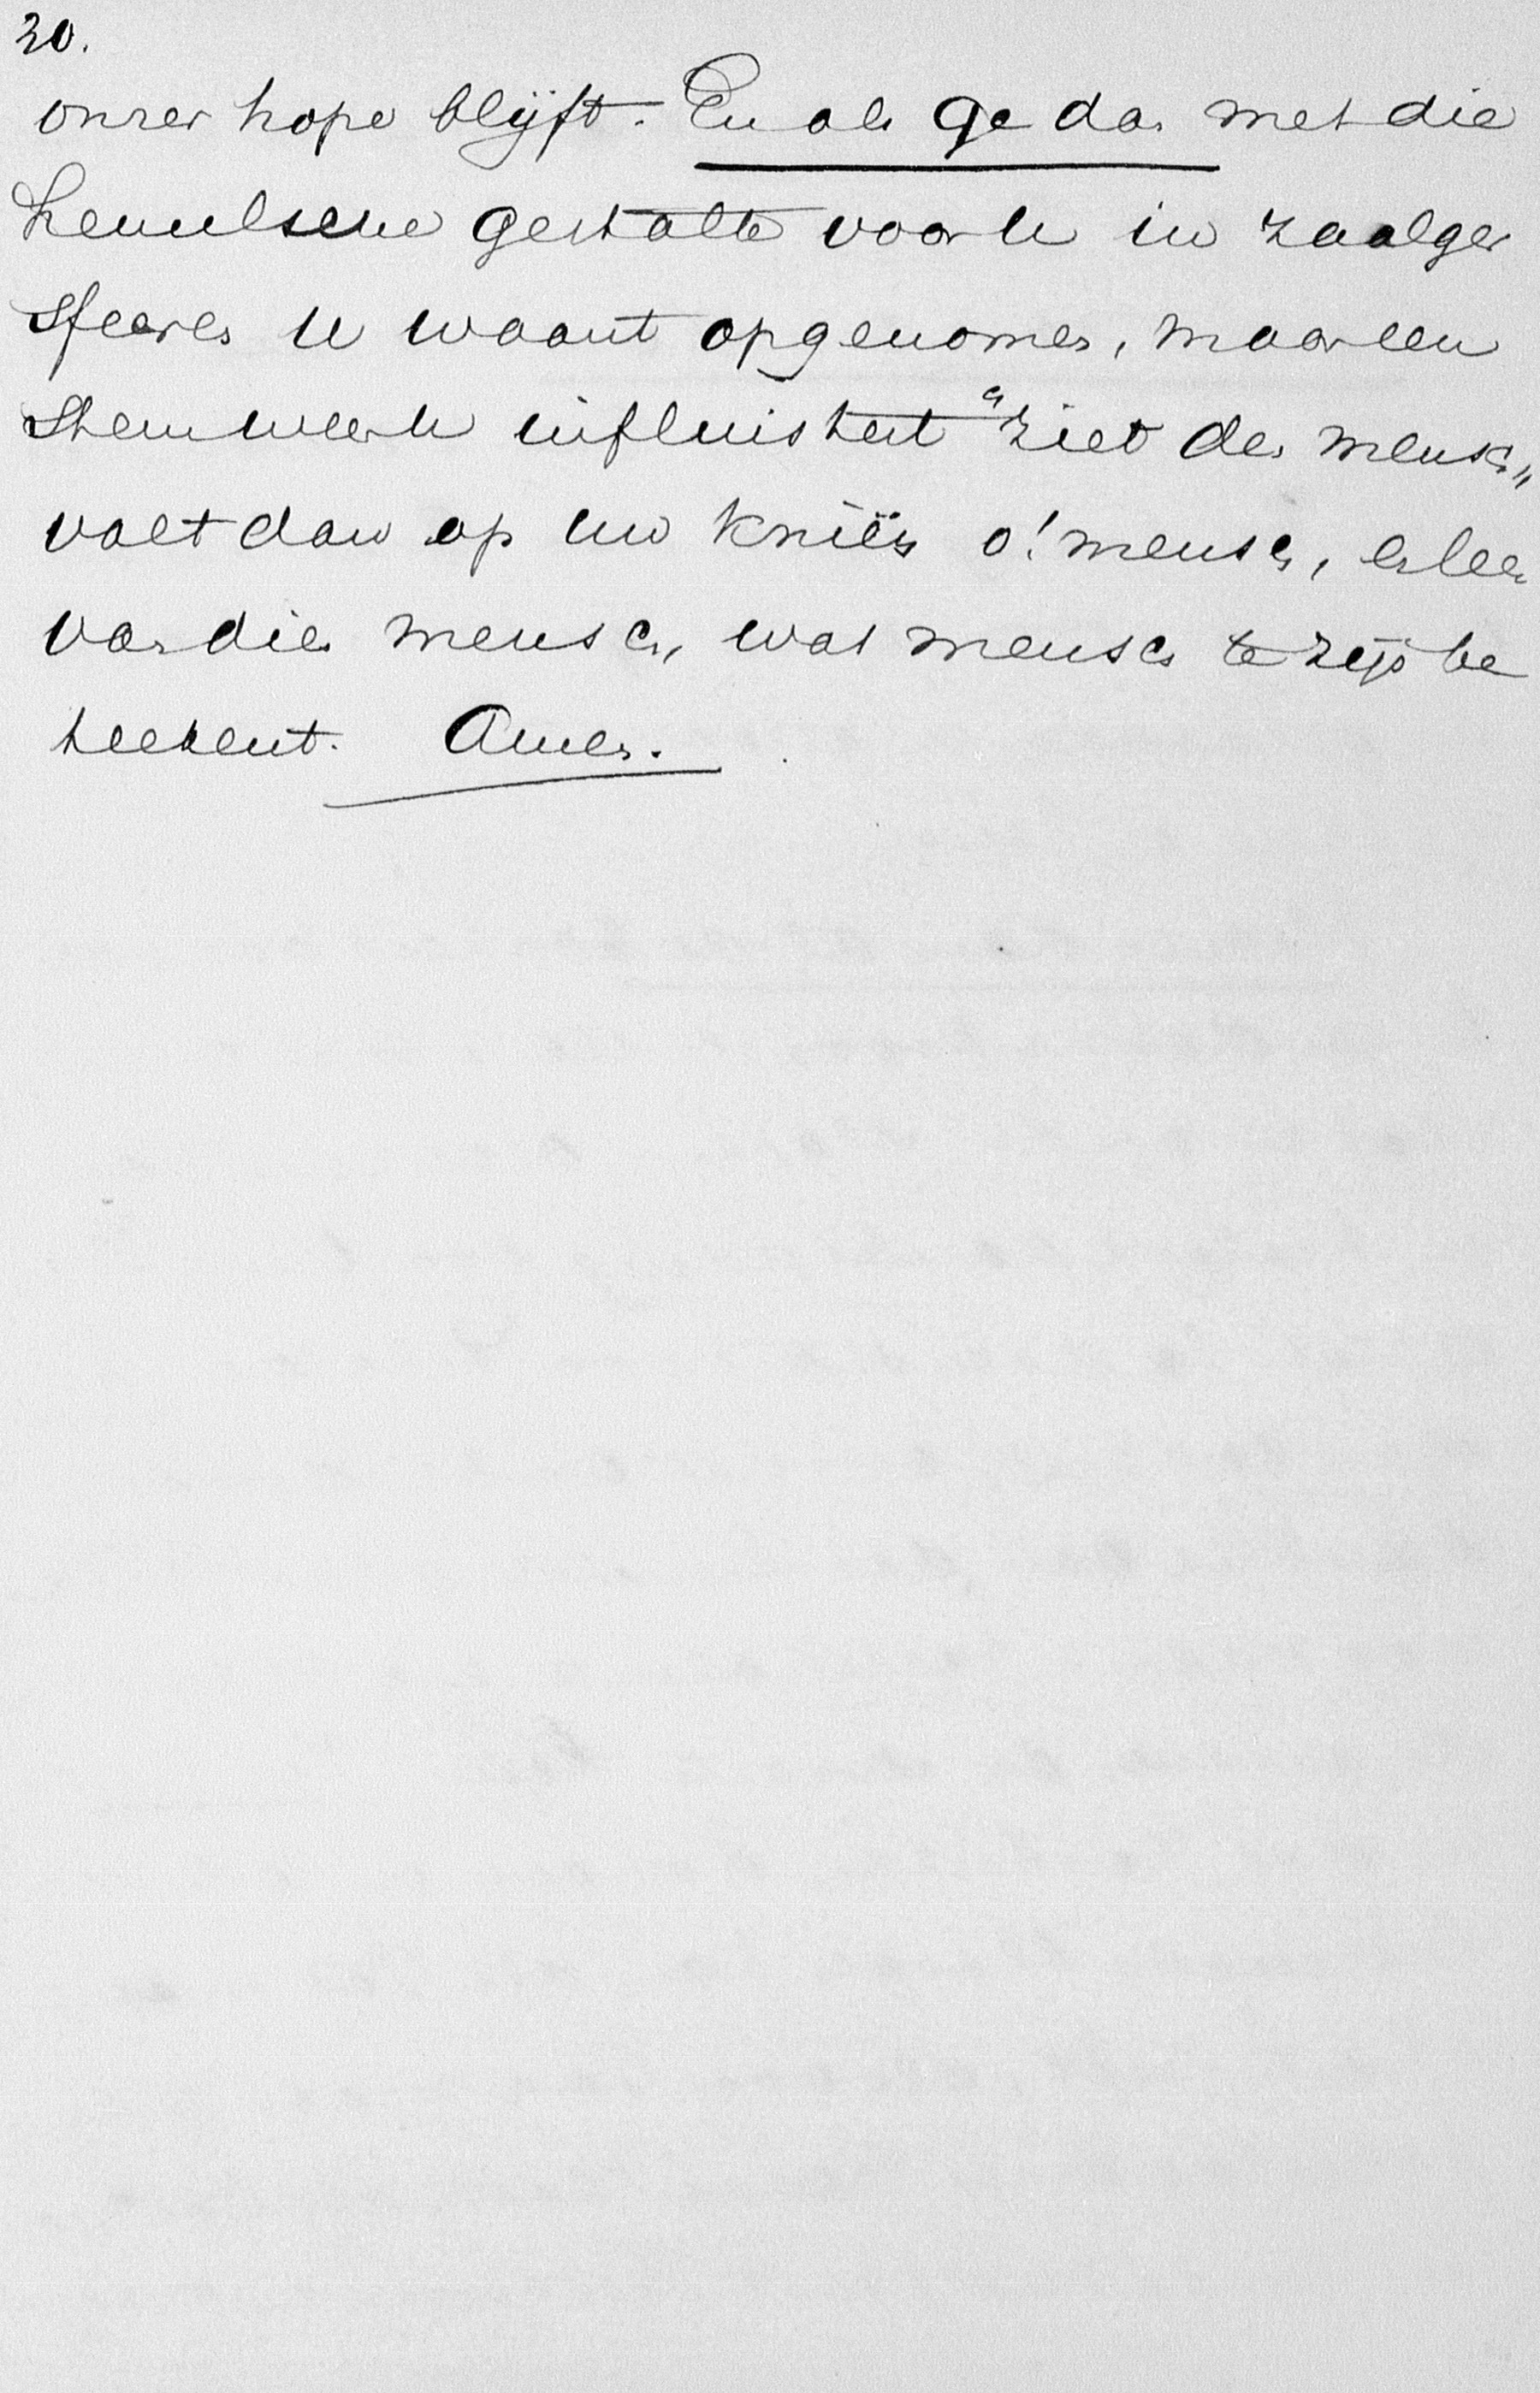 20.
onzer hope blijft. En als ge dan met die
hemelsche gestalte voor u in zaalger
sfeeren u waant opgenomen, maar een
stem weer u influistert "Ziet den mensch"
valt dan op uw knieën o! mensch, en leer
van dien mensch, wat mensch te zijn be
teekent. Amen.